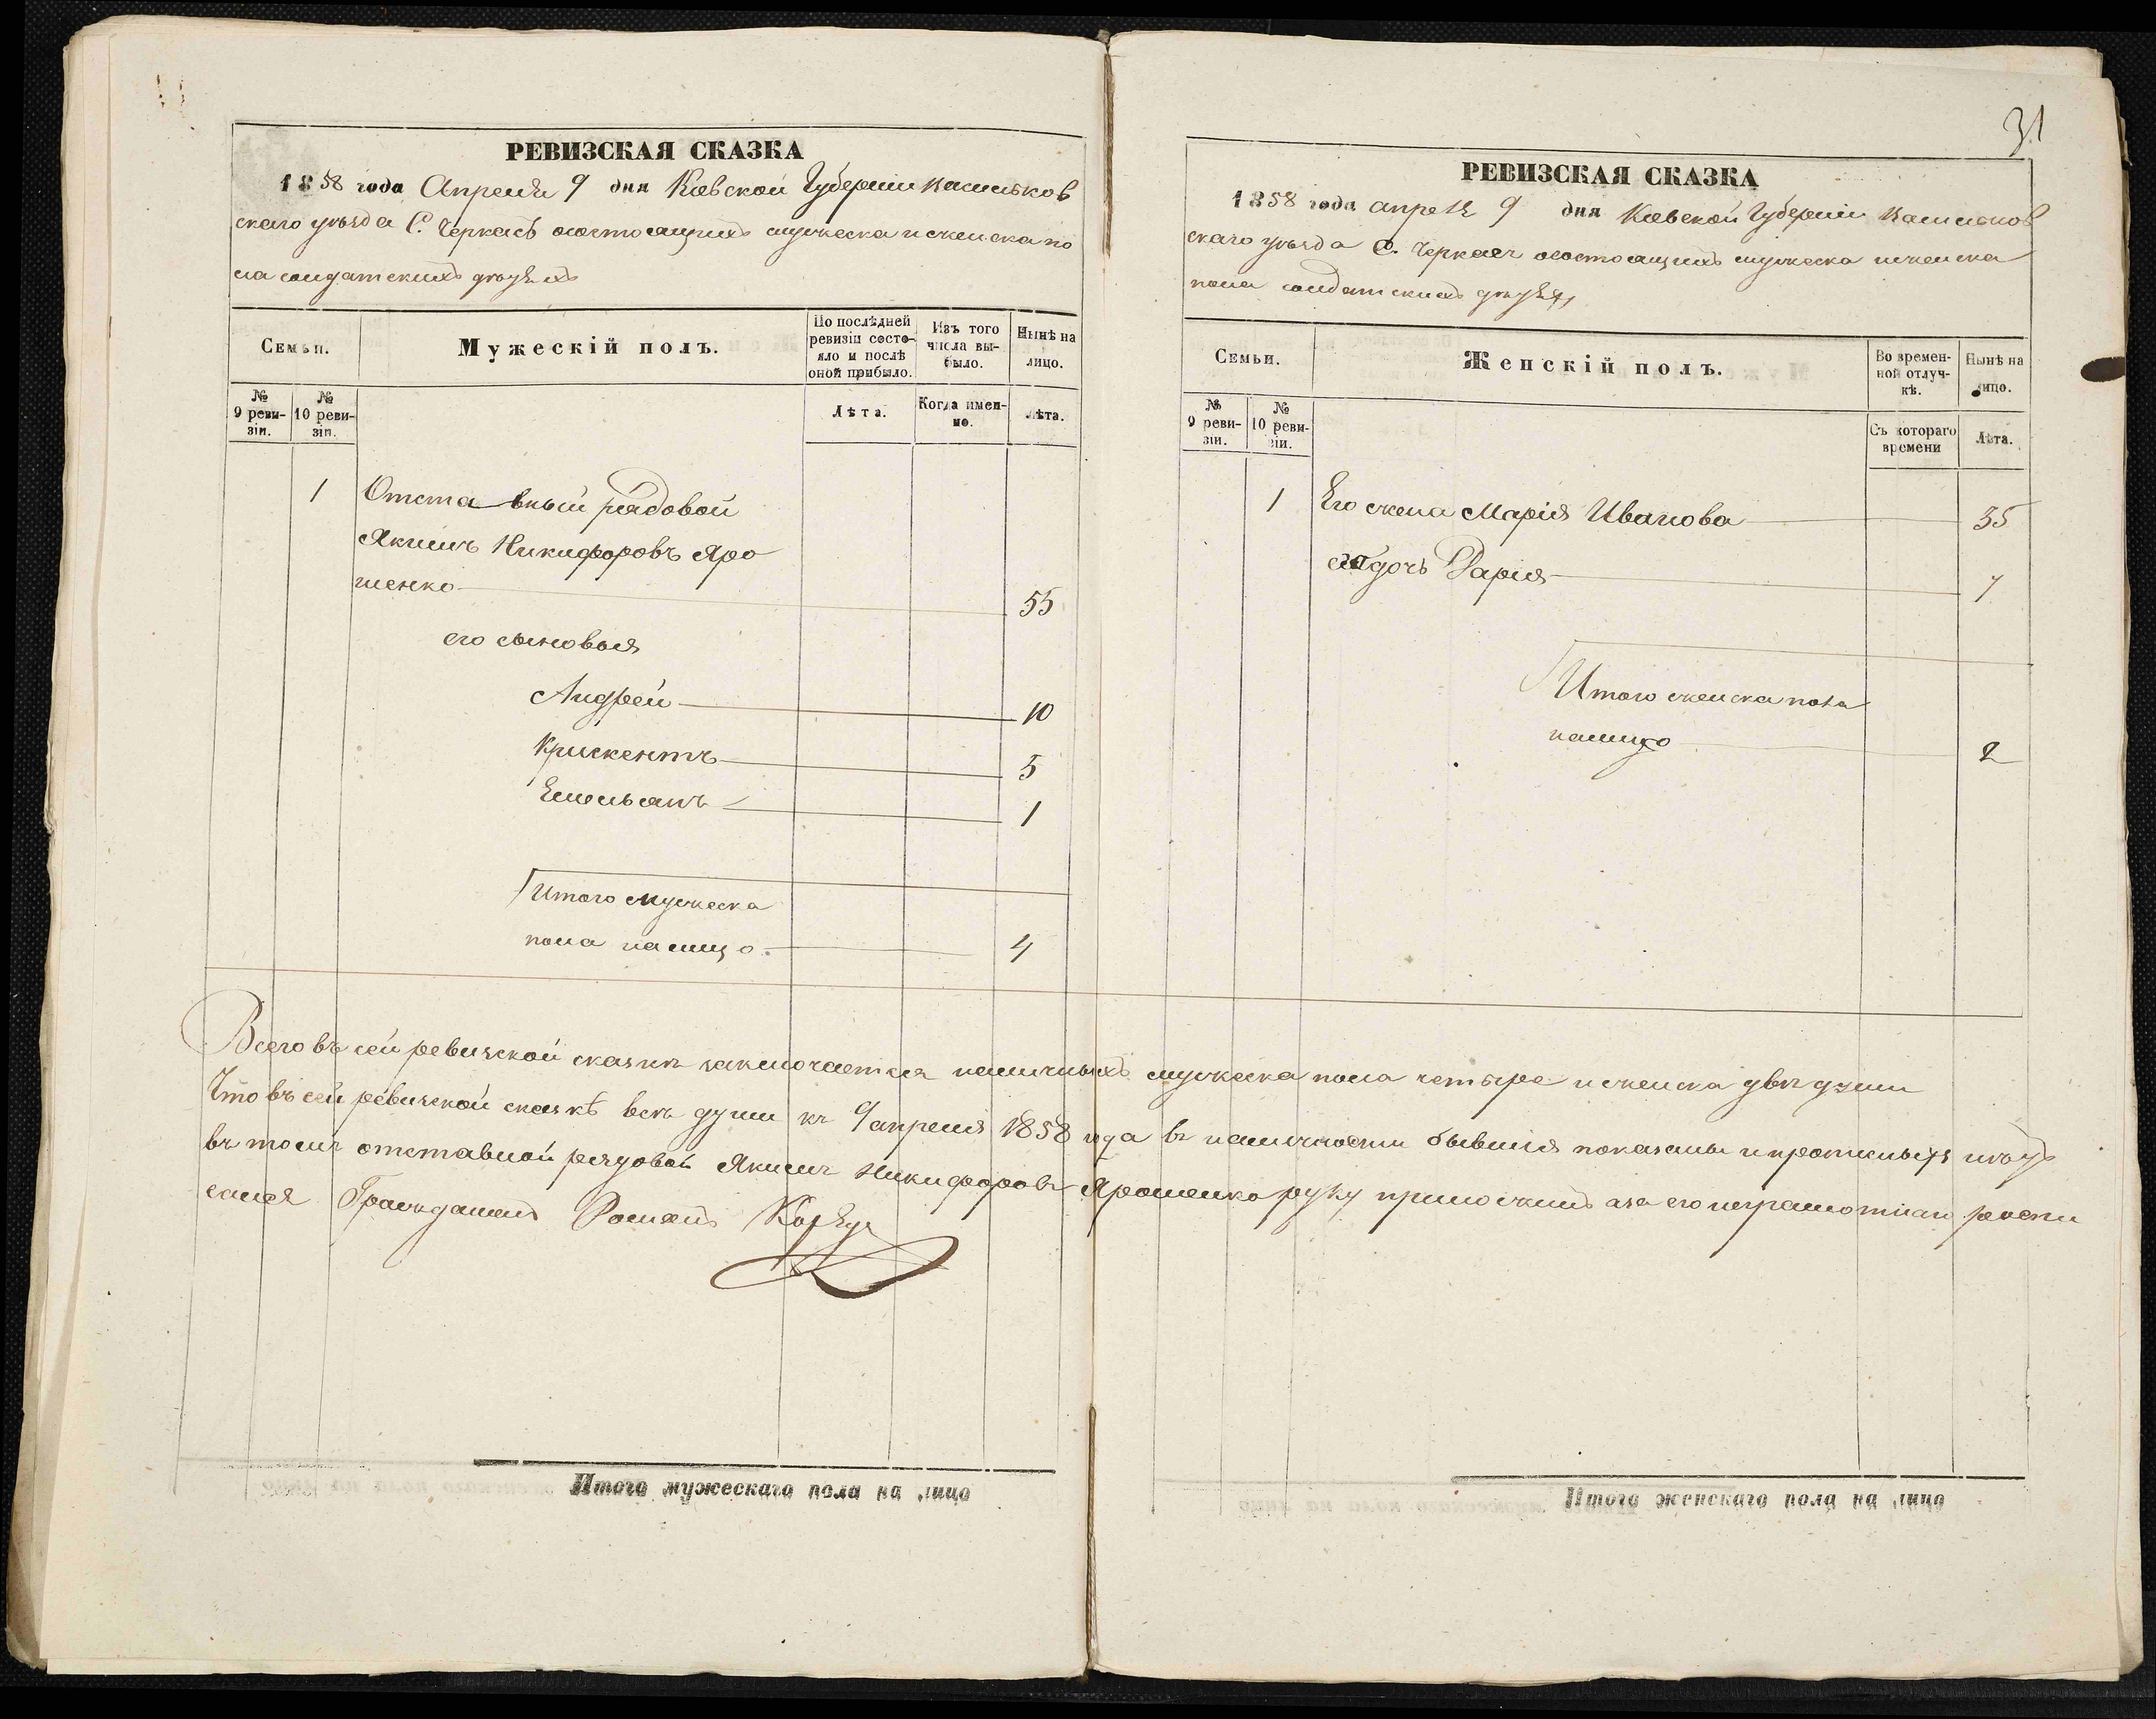 РЕВИЗСКАЯ СКАЗКА
1858 года Апреля 9 дня Кіевской Губерніи Васильков
скаго уѣзда С. Черкасъ осостоящихъ мужеска и женска по
ла солдатскихъ дѣтяхъ
Семьи.
Мужескій полъ.
По послѣдней ревизіи состояло и послѣ оной прибыло.
Изъ того числа выбыло.
Нынѣ на лицо.
№ 9 ревизіи.
№ 10 ревизіи.
Лѣта.
Когда именно.
Лѣта.
1 Отставный рядовой
Якимъ Никифоровъ Яро
шенко 55
его сыновья
Андрей 10
Крискентъ 5
Емельянъ 1
Итого мужеска
пола налицо 4
31
РЕВИЗСКАЯ СКАЗКА
1858 года апреля 9 дня Кіевской Губерніи Васильков
скаго уѣзда С. Черкасъ осостоящихъ мужеска и женска
пола солдатскихъ дѣтях
Семьи.
Женскій полъ.
Во временной отлучкѣ.
Нынѣ на лицо.
№ 9 ревизіи.
№ 10 ревизіи.
Съ котораго времени
Лѣта.
1 Его жена Марія Иванова 35
его дочь Дарія 7
Итого женска пола
налицо 2
Всего въ сей ревизской сказкѣ заключается наличныхъ мужеска пола четыре и женска двѣ души
Что въ сей ревизской сказкѣ всѣ души къ 9 апреля 1858 года въ наличности бывшія показаны и
въ томъ отставной рядовой Якимъ Никифоровъ Ярошенко руку приложилъ а за его неграмотнаго роспи
сался Гражданинъ Романъ
Итого мужескаго пола на лицо
Итого женскаго пола на лицо